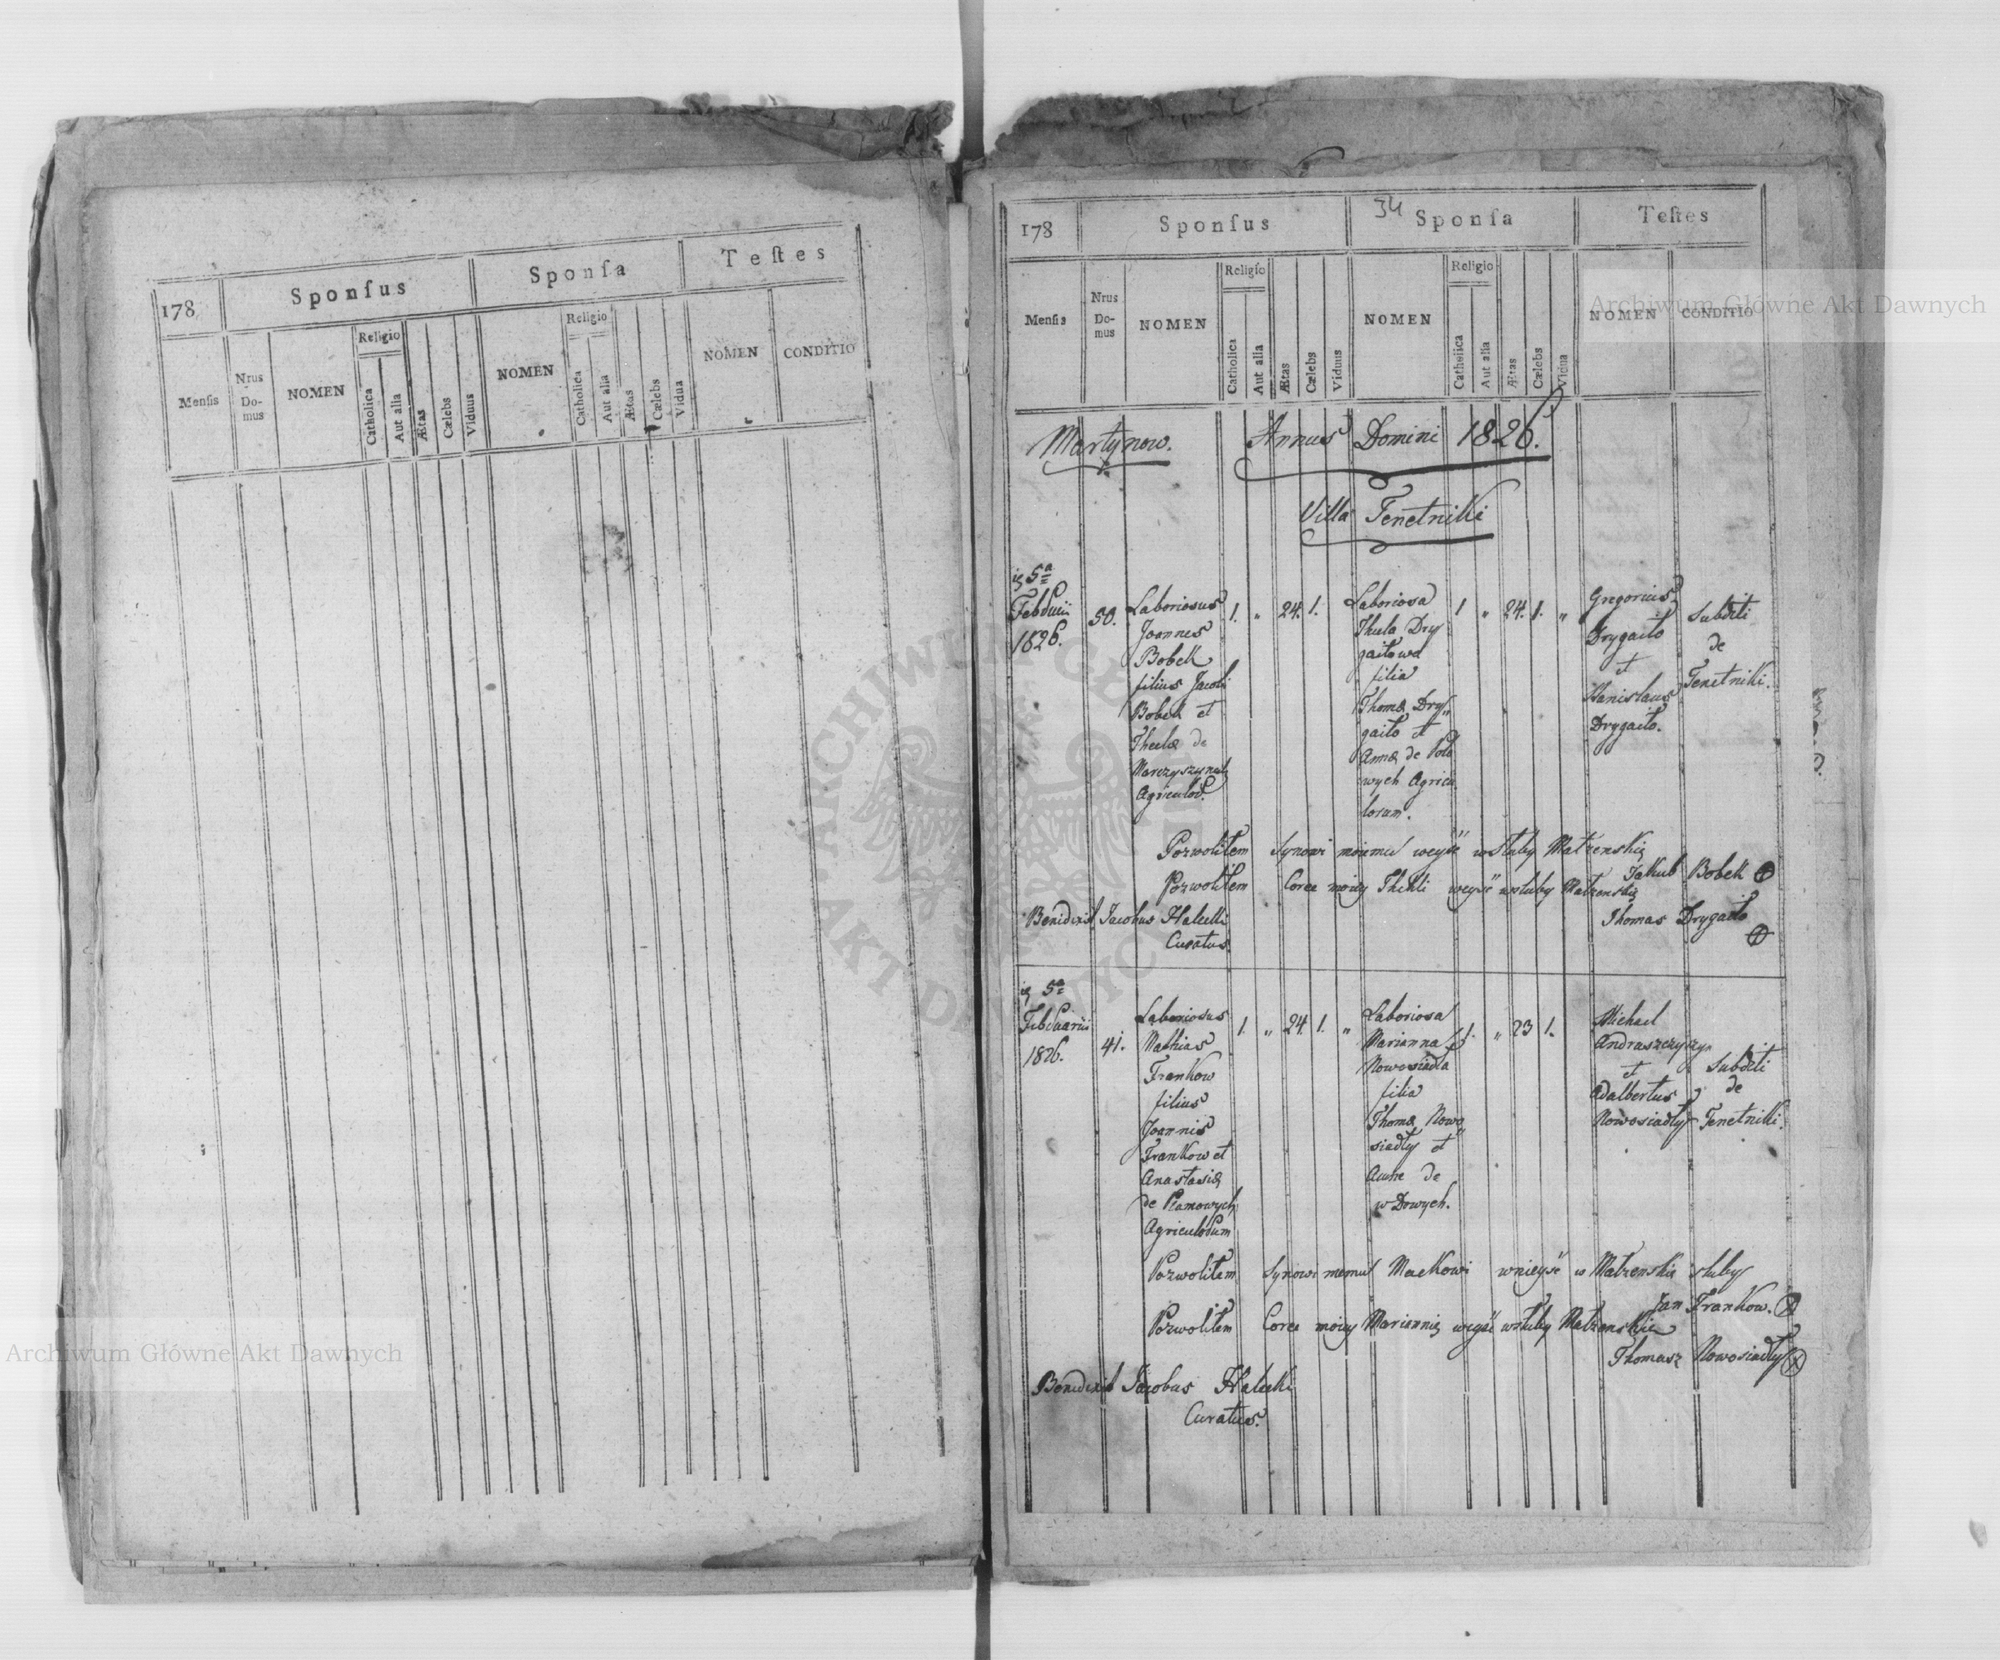 178
Sponſus
Sponſa
Teſtes
Menſis
Nrus Do-mus
NOMEN
Religio
Catholica
Aut alia
Ætas
Cælebs
Viduus
NOMEN
Religio
Catholica
Aut alia
Ætas
Cælebs
Vidua
NOMEN
CONDITIO
34
178
Sponſus
Sponſa
Teſtes
Menſis
Nrus Do-mus
NOMEN
Religio
Catholica
Aut alia
Ætas
Cælebs
Viduus
NOMEN
Religio
Catholica
Aut alia
Ætas
Cælebs
Vidua
NOMEN
CONDITIO
Martynow. Annus Domini 1826.
Villa Tenetniki
5a
1826.
50.
Laboriosus
Joannes
Bobek
filius Jacobi
Bobek et
Theclæ de
1. " 24. 1.
Laboriosa
Thecla Dry
gaitowa
filia
Thomæ Dry„
gaito et
Annæ de Pola
wych Agricu
lorum.
1 " 24. 1. "
Gregorius
Drygaito
et
Stanislaus
Drygaito.
Subditi
de
Tenetniki.
Pozwolitem Synowi moiemu weyść w Sluby Matżenskię
Jakub Bobek
Pozwolitem Corce moiey Thekli weyść w sluby Matzenskię
Thomas Drygaito
Benedixit Jacobus Halecki
Curatus
5a
Februarii
1826.
41.
Laboriosus
Mathias
Frankow
filius
Joannis
Frankow et
Anastasiæ
de
Agricolorum
1. " 24. 1. "
Laboriosa
Marianna
Nowosiadla
filia
Thomæ Nowo„
siadly et
Anne de
wDowych.
1. " 23 1.
Michael
Andruszczyszyn
et
Adalbertus
Nowosiadly
Subditi
de
Tenetniki.
Pozwolitem Synowi memu Mackowi wnieyść w Matzenskie sluby
Jan Frankow.
Pozwolitem Corce moiey Mariannię weyść w sluby Matzenskie
Thomasz Nowosiadly
Benedixit Jacobus Halecki
Curatus.
Archiwum Główne Akt Dawnych
Archiwum Główne Akt Dawnych
ARCHIWUM GŁÓWNE
AKT DAWNYCH